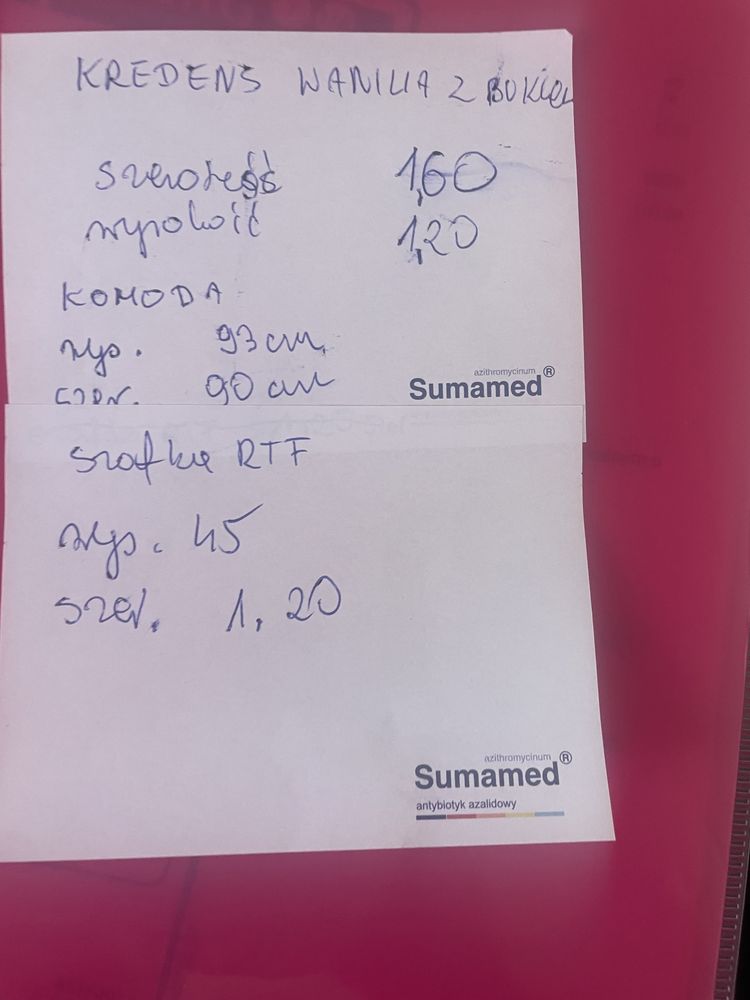 KREDENS WANILIA Z BUKIEM
szerokość 1,60
wysokość 1,20
KOMODA
wys. 93 cm
szer. 90 cm
azithromycinum
Sumamed®
szafka RTF
wys. 45
szer. 1.20
azithromycinum
Sumamed®
antybiotyk azalidowy